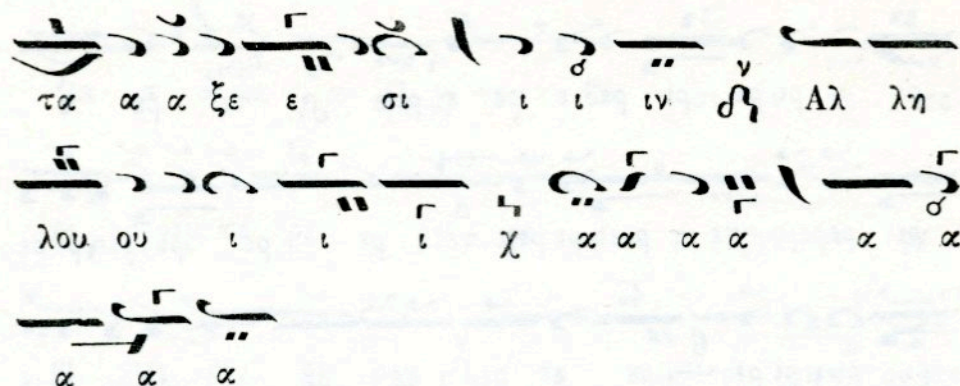 τα α α ξε ε σι ι ι ιν Αλ λη
λου ου ι ι ι χ α α α α α α
α α α